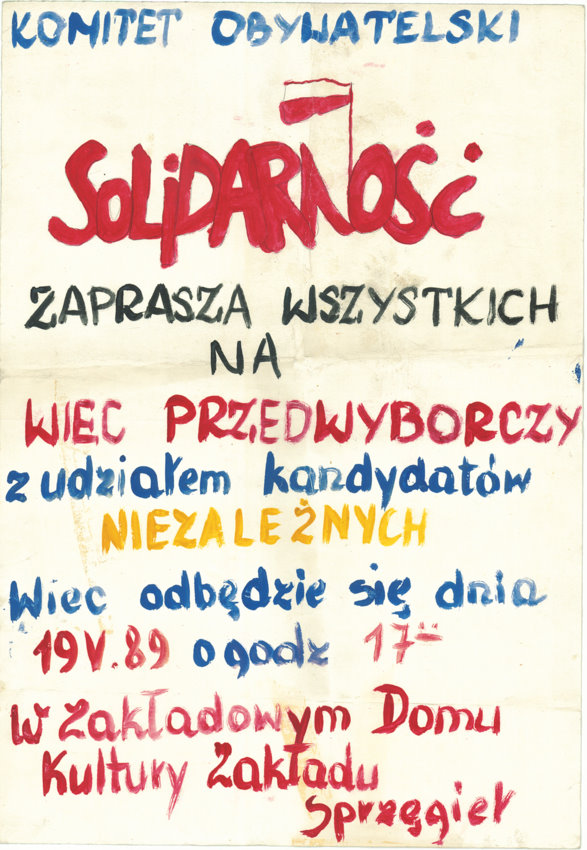 KOMITET OBYWATELSKI
SOLiDARNOŚĆ
ZAPRASZA WSZYSTKICH
NA
WIEC PRZEDWYBORCZY
z udziałem kandydatów
NIEZALEŻNYCH
Wiec odbędzie się dnia
19 V. 89 o godz 17
w Zakładowym Domu
Kultury Zakładu
Sprzęgieł